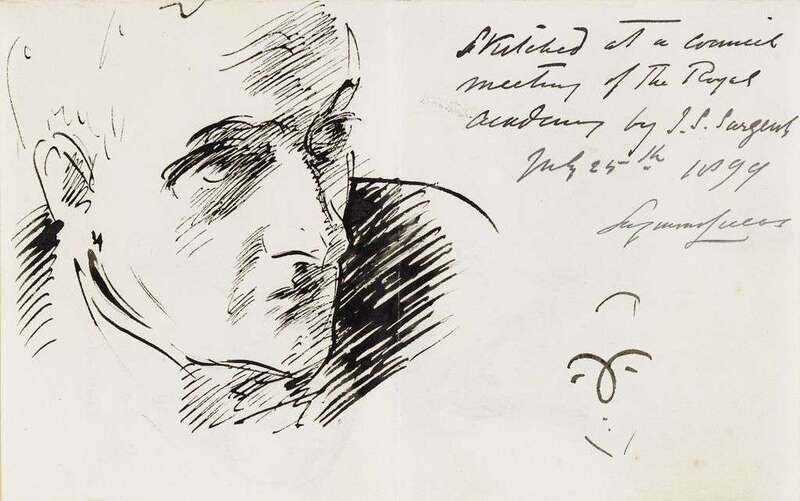 Sketched at a council
meeting of the Royal
Academy by J.S. Sargent
July 25th 1899
Seymour Lucas